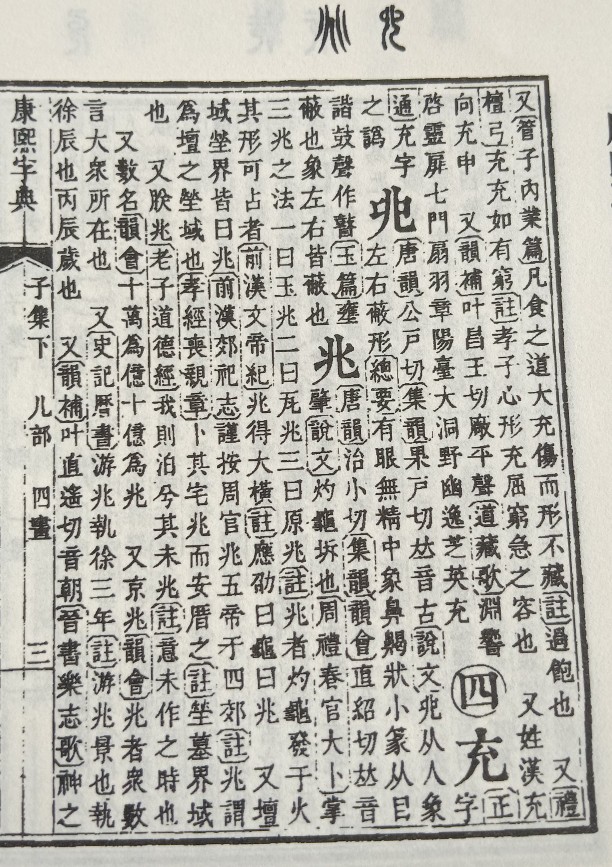 又管子內業篇凡食之道大充傷而形不藏註過飽也 又禮
檀弓充充如有窮註孝子心形充屈窮急之容也 又姓漢充
向充申 又韻補叶昌王切廠平聲道藏歌淵響
啓靈扉七門扇羽章陽臺大洞野幽逸芝英充 四 充 正字
通充字
之譌
𠑹 唐韻公戶切集韻果戶切𠀤音古說文𠑹从人象
左右蔽形總要有眼無精中象鼻𩩲狀小篆从目
諧鼓聲作瞽玉篇壅
蔽也象左右皆蔽也
兆 唐韻治小切集韻韻會直紹切𠀤音
肇說文灼龜坼也周禮春官大卜掌
三兆之法一曰玉兆二曰瓦兆三曰原兆註兆者灼龜發于火
其形可占者前漢文帝紀兆得大橫註應劭曰龜曰兆 又壇
域塋界皆曰兆前漢郊祀志謹按周官兆五帝于四郊註兆謂
為壇之塋域也孝經喪親章卜其宅兆而安厝之註塋墓界域
也 又朕兆老子道德經我則泊兮其未兆註意未作之時也
又數名韻會十萬為億十億為兆 又京兆韻會兆者衆數
言大衆所在也 又史記曆書游兆執徐三年註游兆景也執
徐辰也丙辰歲也 又韻補叶直遙切音朝晉書樂志歌神之
康熙字典 子集下 儿部 四畫 三